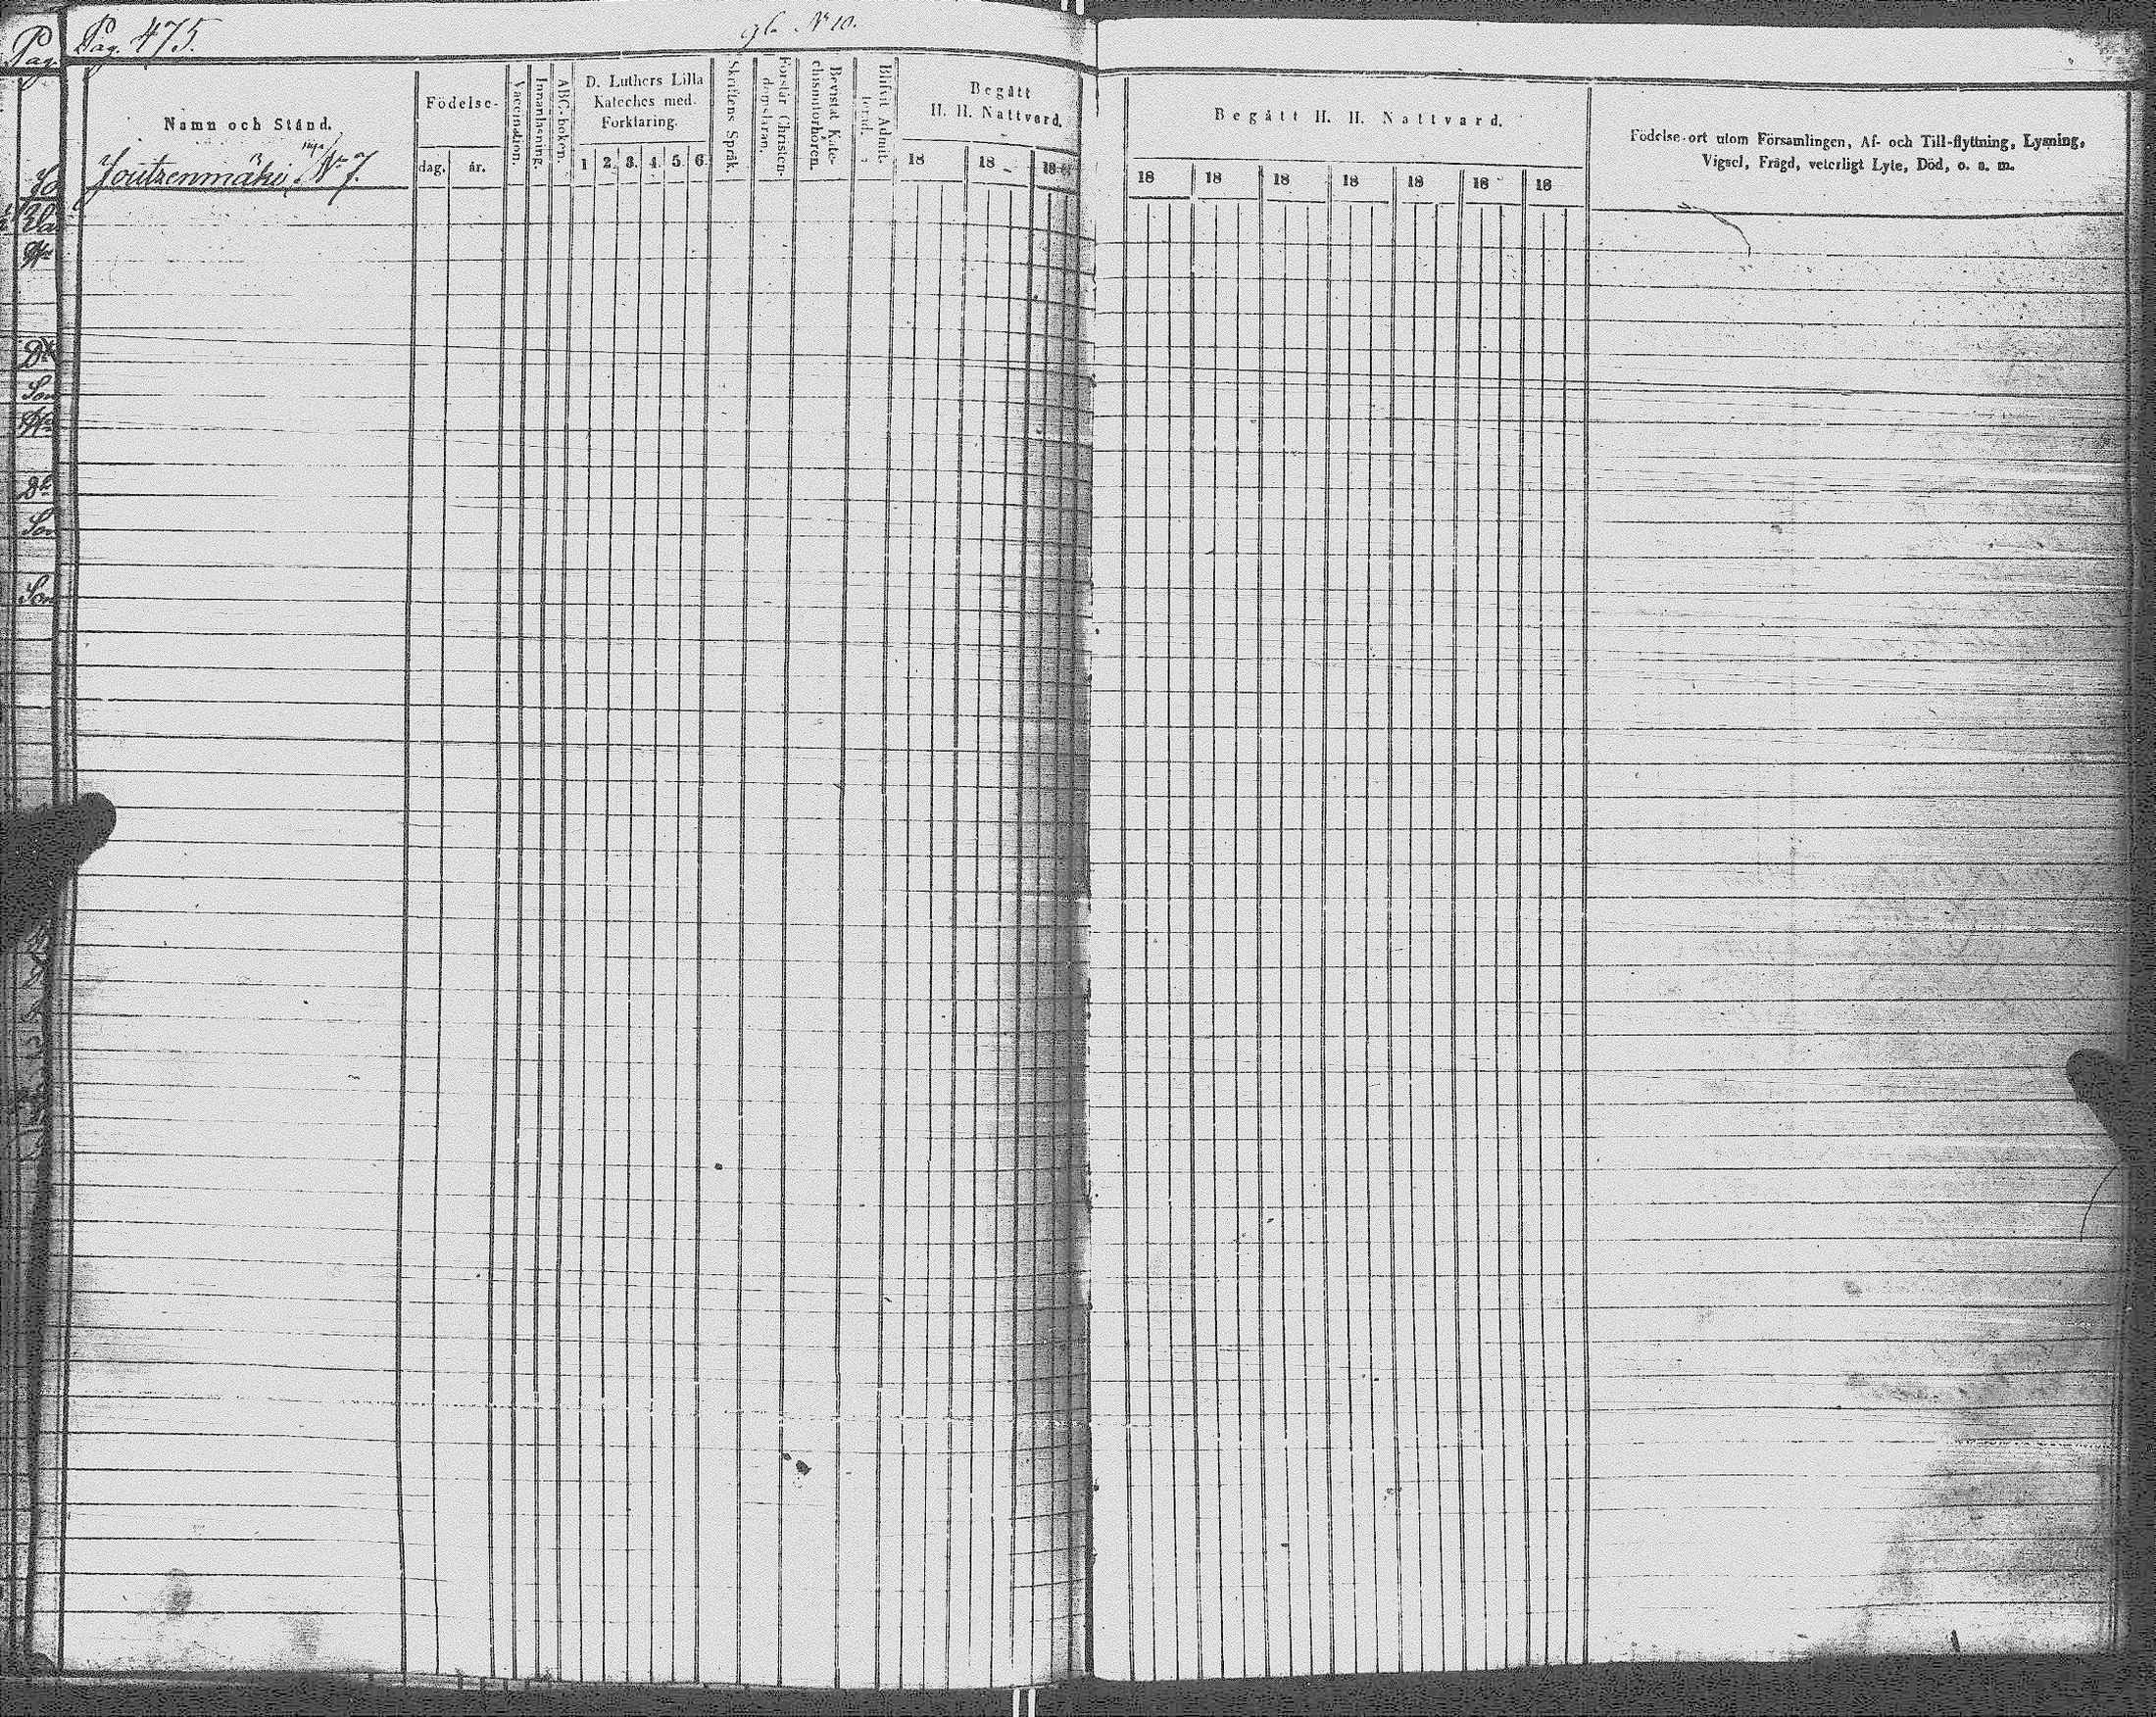 Pag. 475.
N 10.
Pag.
Namn och Stånd.
Joutzenmäki N 7.
Födelse-
dag.
år.
Vaccination.
Innanläsning.
ABC-boken.
D. Luthers Lilla
Kateches med.
Förklaring.
1 2 3. 4. 5. 6.
Skriftens Språk.
Förstår Christen-
domsläran.
Bevistat Kate-
chismiförhören.
Blifvit Admit-
terad.
Begått
H. H. Nattvard.
18 18 18
Begått H. H. Nattvard.
18 18 18 18 18 18 18
Födelse-ort utom Församlingen, Af- och Till-flyttning, Lysning,
Vigsel, Frägd, veterligt Lyte, Död, o. s. m.
Son
Son
Son